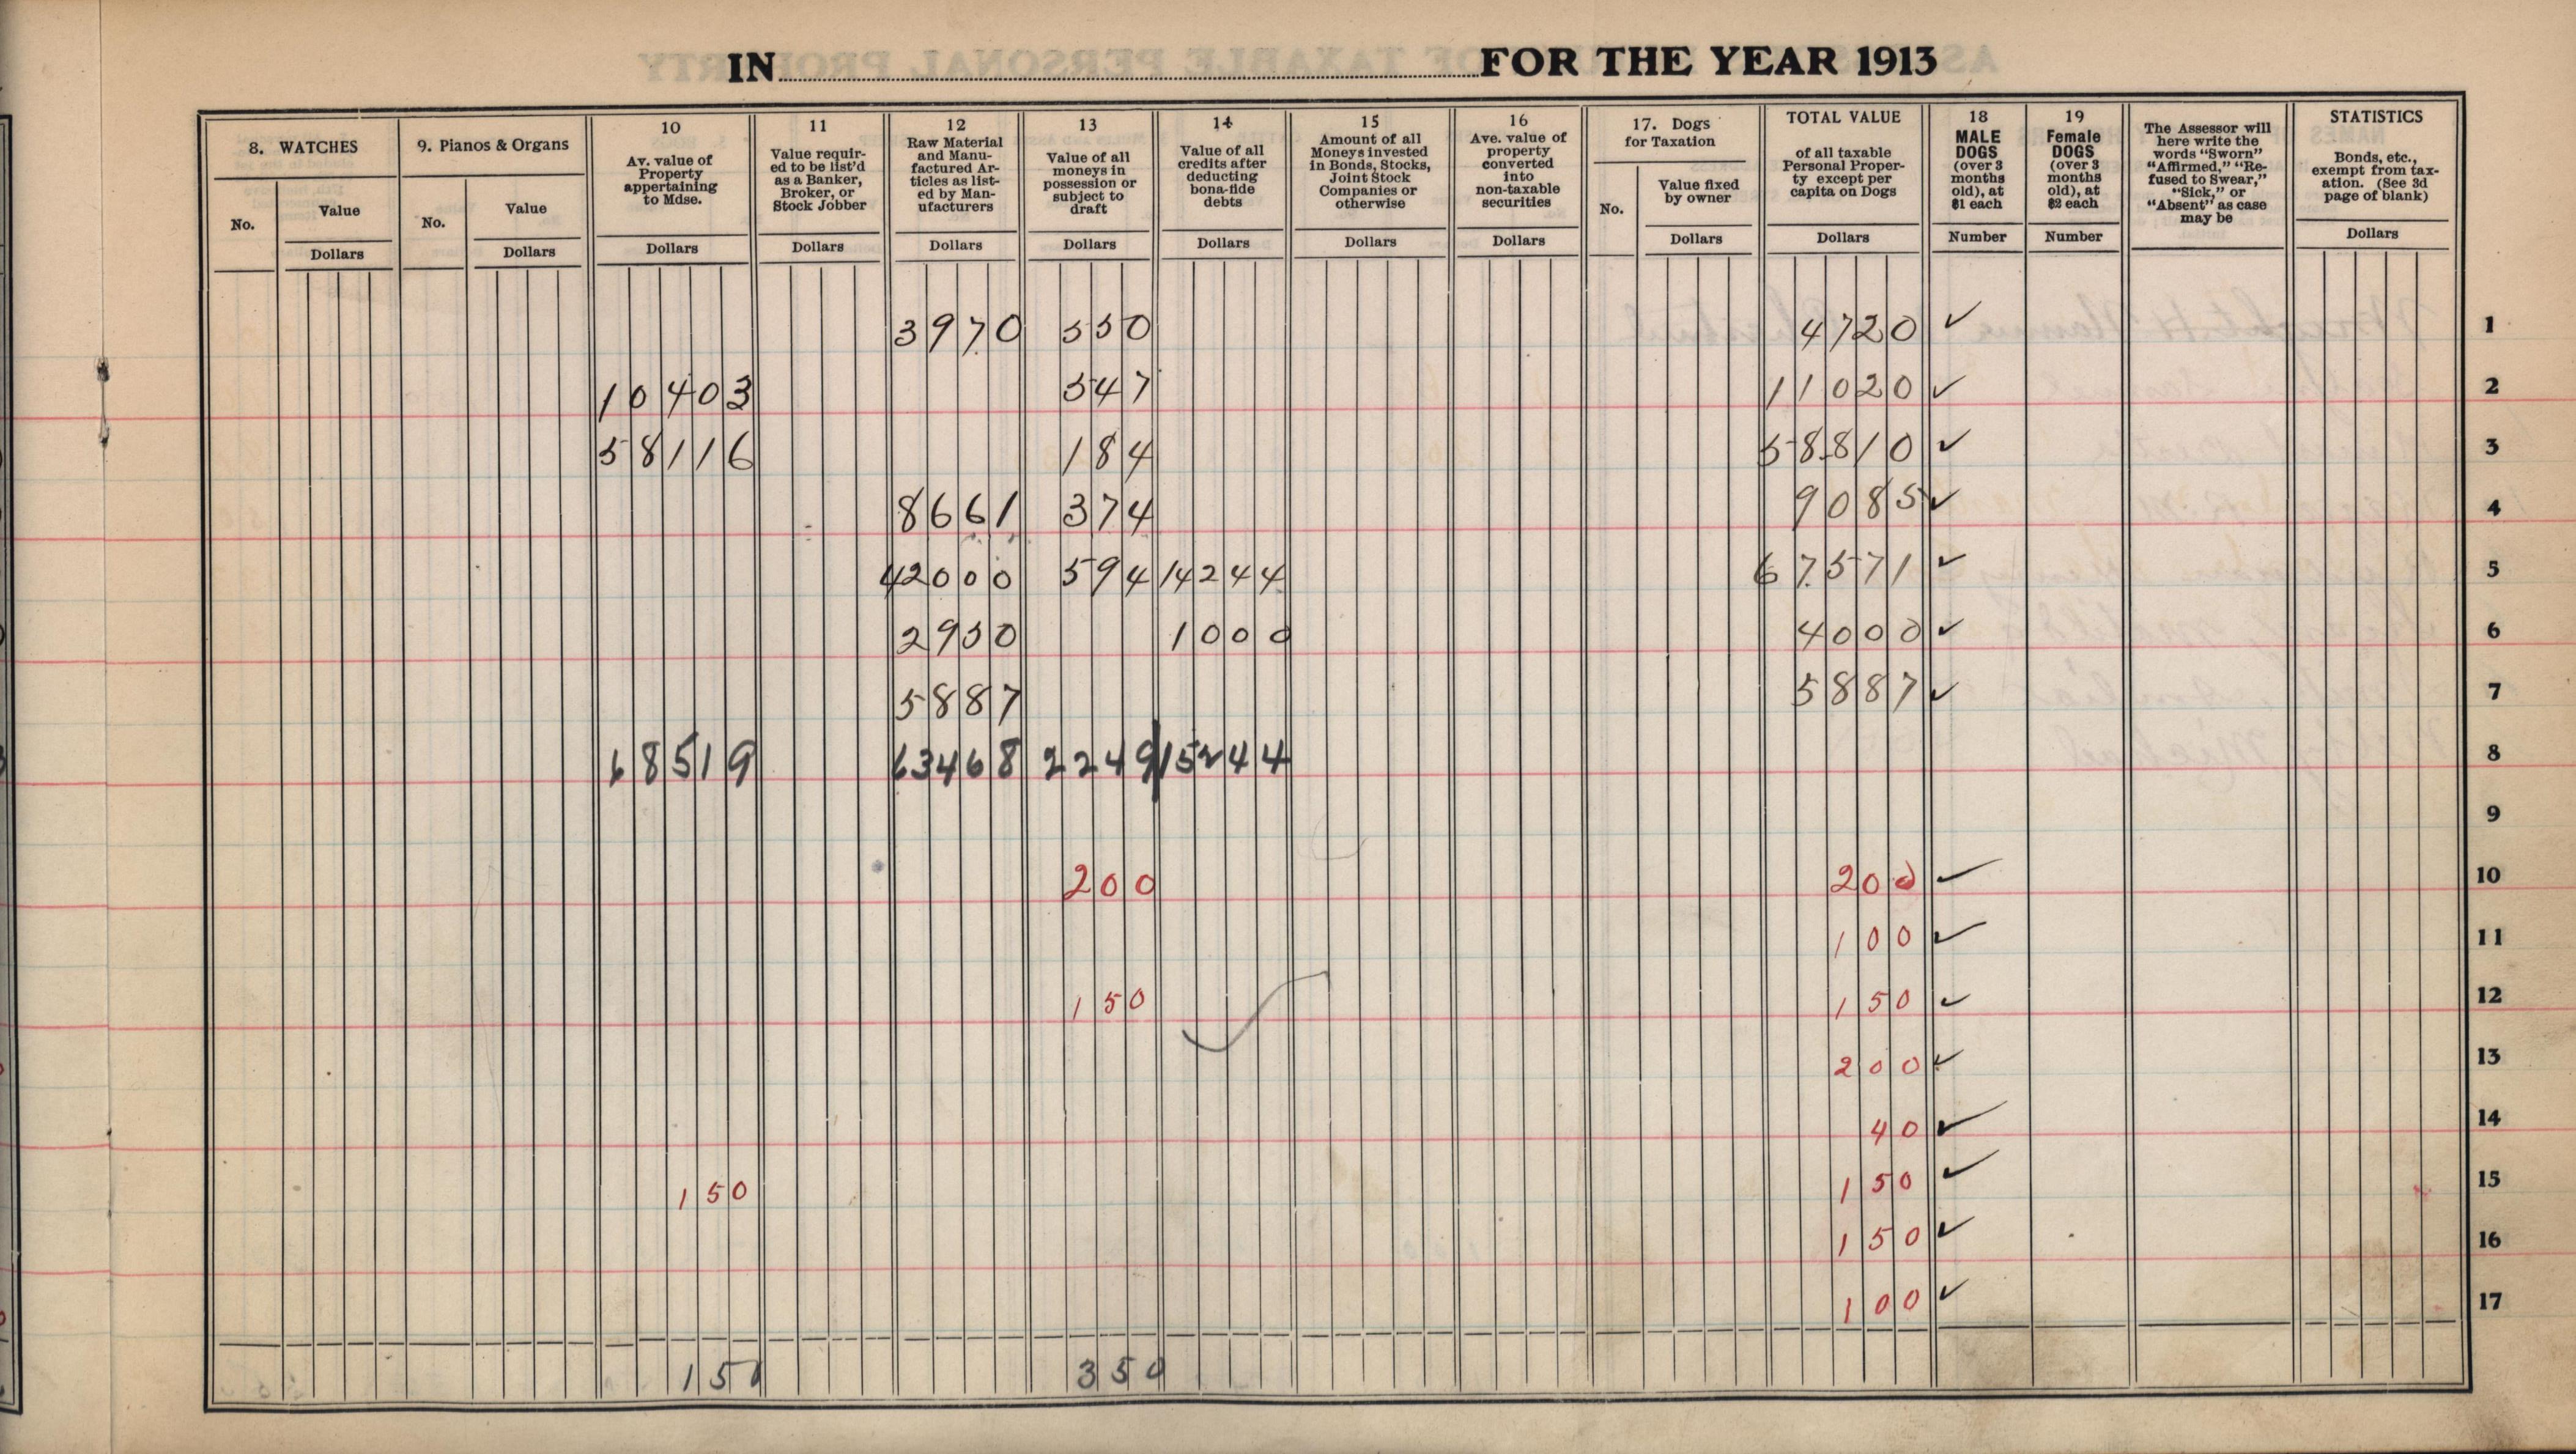 IN FOR THE YEAR 1913
8. WATCHES
No.
Value
Dollars
9. Pianos & Organs
No.
Value
Dollars
10
Av. value of
Property
appertaining
to Mdse.
Dollars
11
Value requir-
ed to be list'd
as a Banker,
Broker, or
Stock Jobber
Dollars
12
Raw Material
and Manu-
factured Ar-
ticles as list-
ed by Man-
ufacturers
Dollars
13
Value of all
moneys in
possession or
subject to
draft
Dollars
14
Value of all
credits after
deducting
bona-fide
debts
Dollars
15
Amount of all
Moneys invested
in Bonds, Stocks,
Joint Stock
Companies or
otherwise
Dollars
16
Ave. value of
property
converted
into
non-taxable
securities
Dollars
17. Dogs
for Taxation
No.
Value fixed
by owner
Dollars
TOTAL VALUE
of all taxable
Personal Proper-
ty except per
capita on Dogs
Dollars
18
MALE
DOGS
(over 3
months
old), at
$1 each
Number
19
Female
DOGS
(over 3
months
old), at
$2 each
Number
The Assessor will
here write the
words "Sworn"
"Affirmed," "Re-
fused to Swear,"
"Sick," or
"Absent" as case
may be
STATISTICS
Bonds, etc.,
exempt from tax-
ation. (See 3d
page of blank)
Dollars
3970 550 4720 ✓ 1
10403 547 11020 ✓ 2
58116 184 58810 ✓ 3
8661 374 9085 ✓ 4
42000 594 14244 67571 ✓ 5
2950 1000 4000 ✓ 6
5887 5887 ✓ 7
68519 63468 2249 15244 8
9
200 200 ✓ 10
100 ✓ 11
150 ✓ 150 ✓ 12
200 ✓ 13
40 ✓ 14
150 150 ✓ 15
150 ✓ 16
100 ✓ 17
150 350